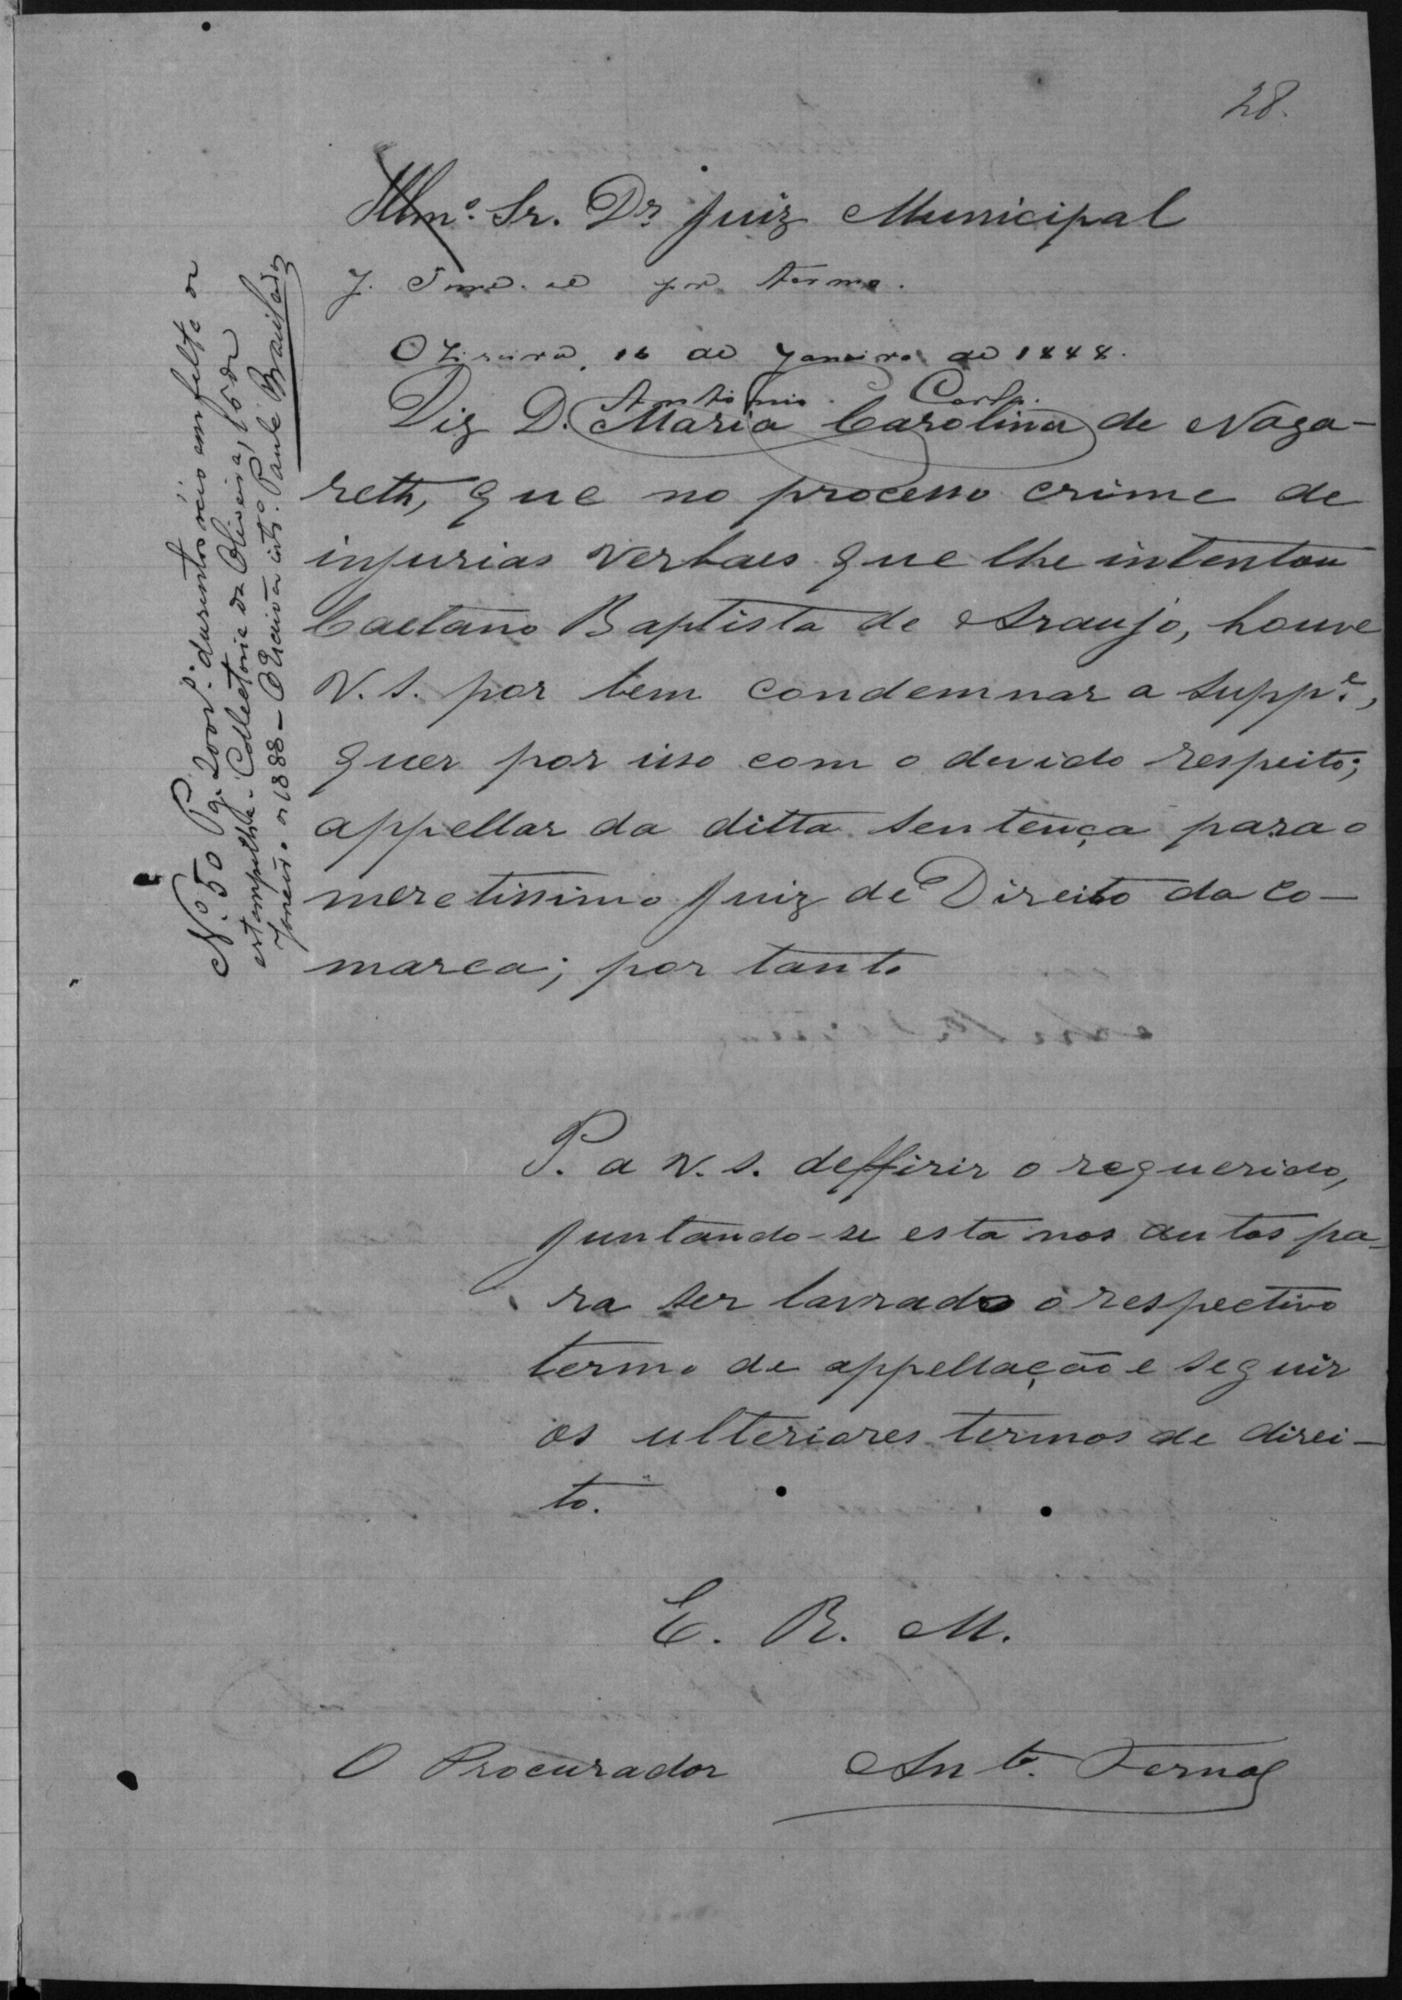 28.
Illmº. Sr. Dr. Juiz Municipal
J. Tome-se por termo.
Oliveira, 16 de Janeiro de 1888.
Antonio Carlos
Diz D. Maria Carolina de Naza-
reth, que no processo crime de
injurias verbaes que lhe intentou
Caetano Baptista de Araujo, houve
V. S. por bem condemnar a suppe.,
quer por isso com o devido respeito;
appellar da ditta sentença para o
meretissimo Juiz de Direito da co-
marca; por tanto
P. a V. S. deffirir o requerido,
juntando-se esta nos autos pa-
ra ser lavrado o respectivo
termo de appellação e seguir
os ulteriores termos de direi-
to.
E. R. M.
O Procurador Anto. Fernas
Nº. 50 Pg. 200 rs. duzentos reis em falta de
estampilha. Collectoria de Oliveira, 16 de
Janeiro de 1888 - O Escrivão Paulo Brasileiro